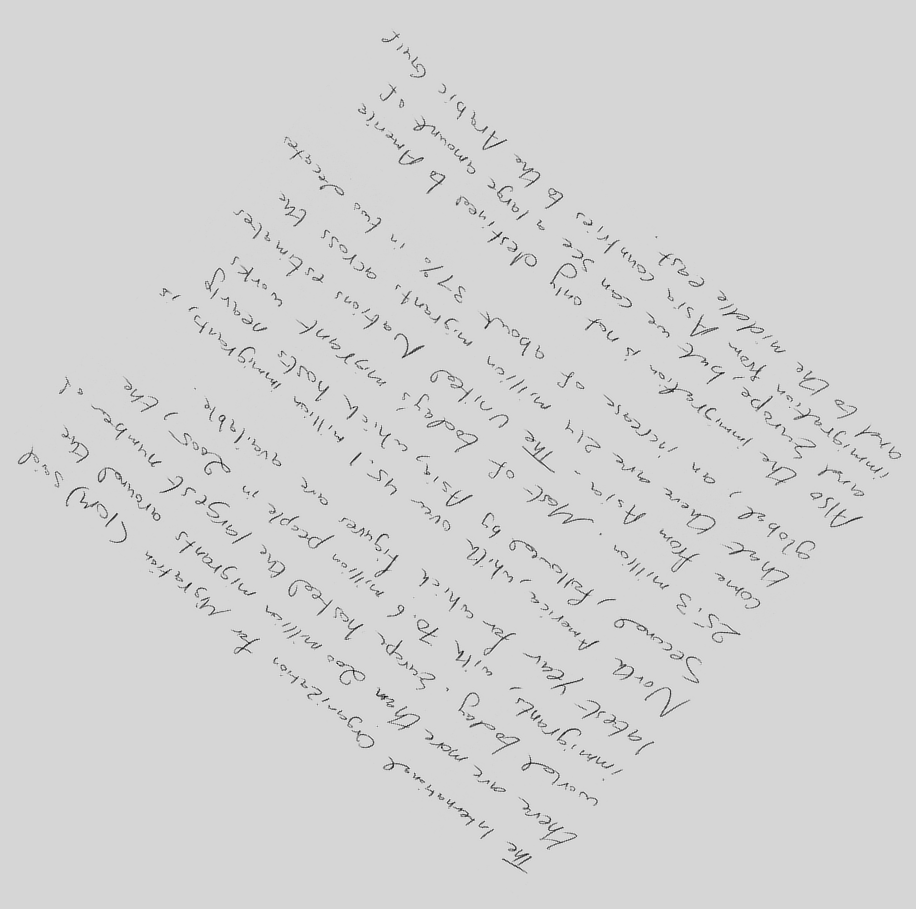 The International Organization for Migration (IOM) said
there are more than 200 million migrants around the
world today. Europe hosted the largest number of
immigrants, with 70.6 million people in 2005, the
latest year for which figures are available.
North America, with over 45.1 million immigrants, is
Second, followed by Asia, which hosts nearly
25.3 million. Most of today's migrant works
come from Asia. The United Nations estimates
that there are 214 million migrants across the
global, an increase of about 37% in two decates
Also the immigration is not only destined to Americe
and Europe, but we can see a large amount of
immigration from Asia countries to the Arabic Gulf
and to the middle east.